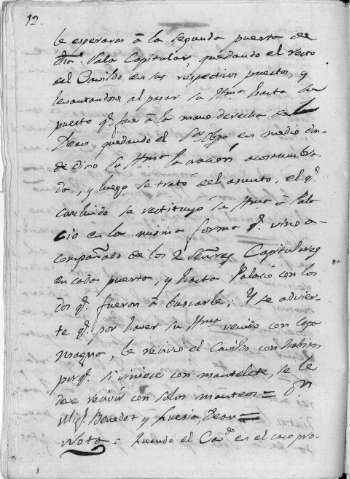 12.
le esperaron à la segunda puerta de
dha. Sala Capitular, quedando el resto
del Cavildo en sus respectivos puestos, y
levantandose al pasar su Ilma. hasta su
puesto qe. fue à la mano derecha del
Dean, quedando el Sr. en medio don-
de dixo su Ilma. la oracion acostumbra-
da, y luego se trató del asunto, el qe.
concluido se restituyó su Ilma. à Pala-
cio en la misma forma qe. vino a-
compañado de los 2 Señores Capitulares
en cada puerta, y hasta Palacio con los
dos qe. fueron à buscarle; Y se advier-
te qe. por haver su Ilma. venido con Capa
magna, le recivió el Cavildo con habitos
porqe. si viniese con mantelete, se le
deve recivir con solos manteos =
Migl. Benedet y Lueria, Dean =
Nota = Quando el Cavdo. en el caso pro-